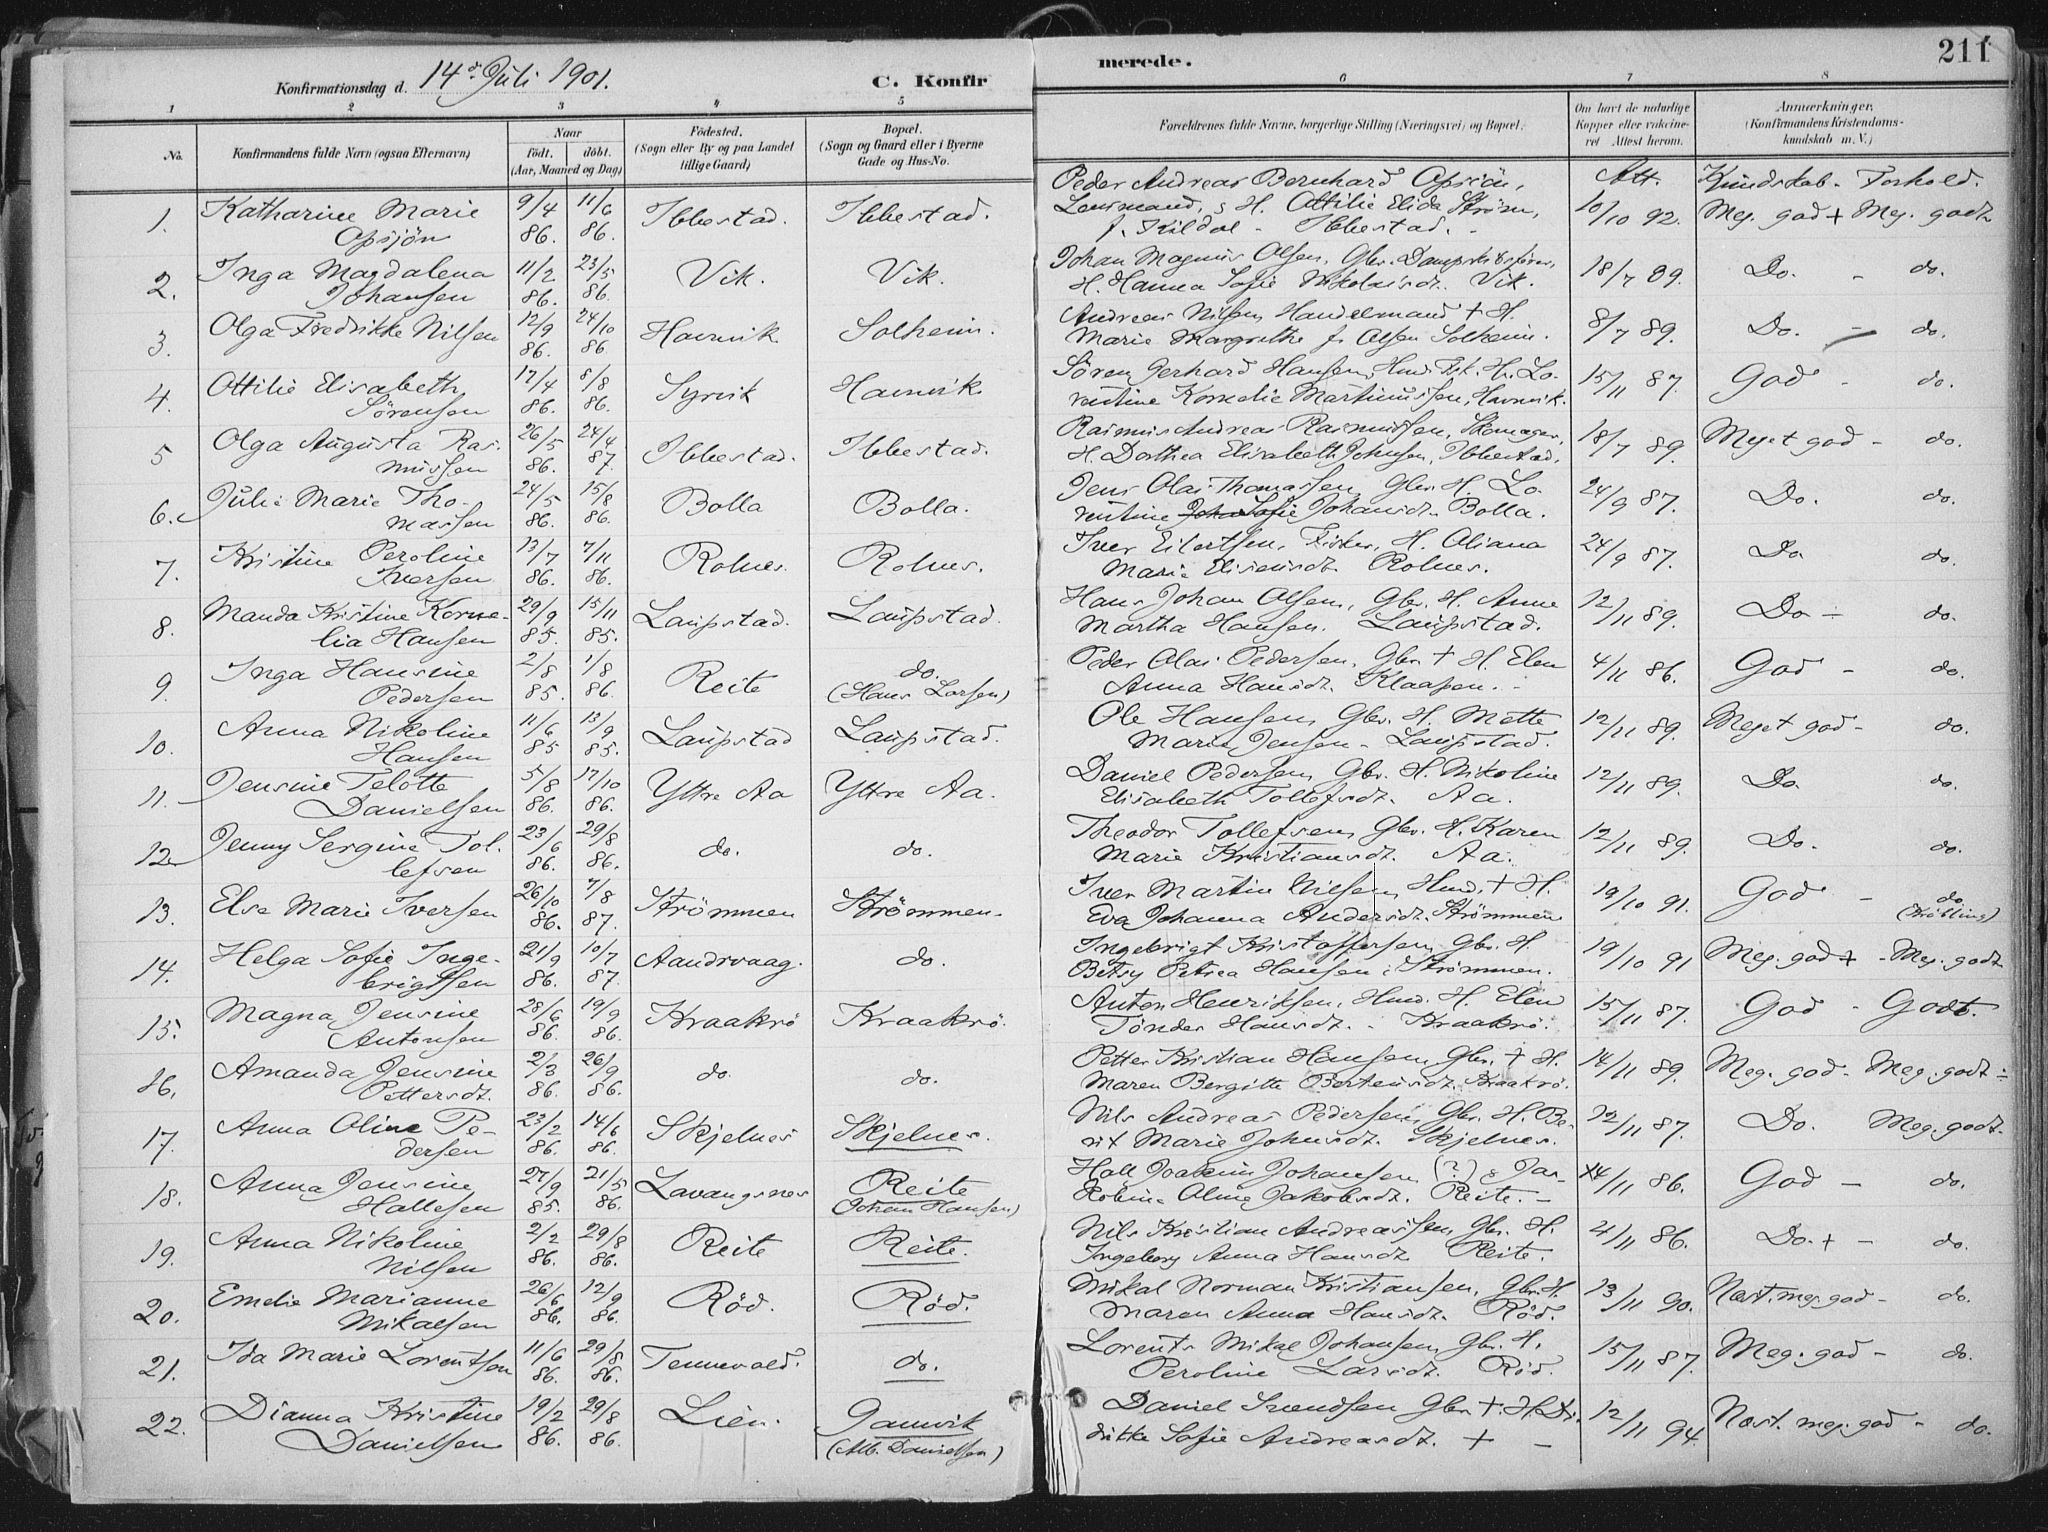 211
Konfirmationsdag d. 14de Juli 1901. C. Konfirmerede.
1 2 3 4 5 6 7 8
No. Konfirmandens fulde Navn (ogsaa Efternavn) Naar födt. döbt. (Aar, Maaned og Dag) Födested. (Sogn eller By og paa Landet tillige Gaard) Bopæl. (Sogn og Gaard eller i Byerne Gade og Hus-No. Forældrenes fulde Navne, borgerlige Stilling (Næringsvei) og Bopæl. Om havt de naturlige Kopper eller vakcineret. Attest herom. Anmærkninger. (Konfirmandens Kristendomskundskab m. V.)
Att. Kundskab. Forhold.
1. Katharine Marie Opsjön 9/4 86. 11/6 86. Ibbestad. Ibbestad. Peder Andreas Bernhard Opsjön, Lensmand, & H. Ottilie Elida Strøm, f. Kildal - Ibbestad. - 10/10 92. Meg. god + Meg. godt
2. Inga Magdalena Johansen 11/2 86. 23/5 86. Vik. Vik. Johan Magnus Olsen, Gbr. H. Hanna Sofie Nikolaisdt. Vik. 18/7 89. Do. - do.
3. Olga Fredrikke Nilsen 12/9 86. 24/10 86 Havnvik Solheim. Andreas Nilsen Handelmand + H. Marie Margrethe f. Olsen Solheim. 8/7 89. Do. - do.
4. Ottilie Elisabeth Sörensen 17/4 86. 8/8 86. Syrvik Havnvik Sören Gerhard Hansen, Hmd. Fisk. H. Lorentine Kornelie Martinussen, Havnvik. 15/11 87. God - do.
5 Olga Augusta Rasmussen 26/5 86. 24/4 87. Ibbestad. Ibbestad. Rasmus Andreas Rasmussen, Skomager, H. Dorthea Elisabeth Johnsen, Ibbestad. 18/7 89. Meget god - do.
6. Julie Marie Thomassen 24/5 86. 15/8 86. Bolla Bolla. Jens Olai Thomassen, Gbr. H. Lorentine Sofie Johansdt. Bolla. 24/9 87. Do. do.
7. Kristine Peroline Iversen 13/7 86. 7/11 86. Rolnes. Rolnes. Iver Eilertsen, Fisker, H. Oliana Marie Elisensdt. Rolnes. 24/9 87. Do. do.
8. Manda Kristine Kornelia Hansen 29/9 85. 15/11 85. Laupstad. Laupstad. Hans Johan Olsen, Gbr. H. Anne Martha Hansen. Laupstad. 12/11 89. Do - do.
9. Inga Hansine Pedersen 2/8 85. 1/8 86. Reite do. (Hans Larsen) Peder Olai Pedersen, Gbr. + H. Elen Anna Hansdt. Klaapen. - 4/11 86. God - do.
10. Anna Nikoline Hansen 11/6 85 13/9 85. Laupstad Laupstad. Ole Hansen, Gbr. H. Mette Marie Jensen - Laupstad. 12/11 89. Meget god - do.
11. Jensine Telotte Danielsen 5/8 86. 17/10 86. Yttre Aa Yttre Aa. Daniel Pedersen, Gbr. H. Nikoline Elisabeth Tollefsdt. Aa. 12/11 89. Do. do.
12. Jenny Sergine Tollefsen 23/6 86. 29/8 86. do. do. Theodor Tollefsen, Gbr. H. Karen Marie Kristiansdt. Aa. 12/11 89. Do. do.
13. Else Marie Iversen 26/10 86. 7/8 87. Strömmen Strömmen. Iver Martin Nilsen, Hmd. + H. Eva Johanna Andersdt. Strömmen 19/10 91. God - do. (Krøbling)
14. Helga Sofie Ingebrigtsen 21/9 86. 10/7 87. Aandrvaag. do. Ingebrigt Kristoffersen, Gbr. H. Betsy Petrea Hansen; Strömmen. 19/10 91 Meg. god + - Meg. godt
15. Magna Jensine Antonsen 28/6 86. 19/9 86. Kraakrö Kraakrö. Anton Henriksen, Hmd. H. Elen Tönder Hansdt. - Kraakrö. 15/11 87. God - Godt.
16. Amanda Jensine Pettersdt. 2/3 86. 26/9 86. do. do. Petter Kristian Hansen, Gbr. + H. Maren Bergitte Bertensdt. Kraakrö. 14/11 89. Meg. god - Meg. godt -
17. Anna Oline Pedersen 23/2 86. 14/6 86. Skjelnes Skjelnes. Nils Andreas Pedersen, Gbr. H. Berit Marie Johnsdt. Skjelnes. 12/11 87. Do. Meg. godt.
18. Anna Jensine Hallesen 27/9 85. 21/5 86. Lavangsnes Reite (Johan Hansen) Hall Joakim Johansen (?) & Oline Jakobsdt. Reite. - 4/11 86. God - do.
19. Anna Nikoline Nilsen 2/2 86. 29/8 86. Reite Reite. Nils Kristian Andreassen, Gbr. H. Ingeborg Anna Hansdt. Reite. 4/11 86. Do. + - do.
20. Emelie Marianne Mikalsen 26/6 86. 12/9 86. Röd. Röd. Mikal Norman Kristiansen, Gbr. H. Maren Anna Hansdt. Röd. 13/11 90. Næst. meg. god - do.
21. Ida Marie Lorentsen 11/6 86. 29/8 86. Tennevold. do. Lorents Mikal Johansen, Gbr. H. Peroline Larsdt. Röd. 15/11 87. Meg. god - do.
22. Dianna Kristine Danielsen 19/2 86. 29/8 86. Lien. Gamvik (Alb. Danielsen) Daniel Svendsen Gbr. + H. Didrikke Sofie Andreasdt. + - 12/11 94. Næst. meg. god - do.